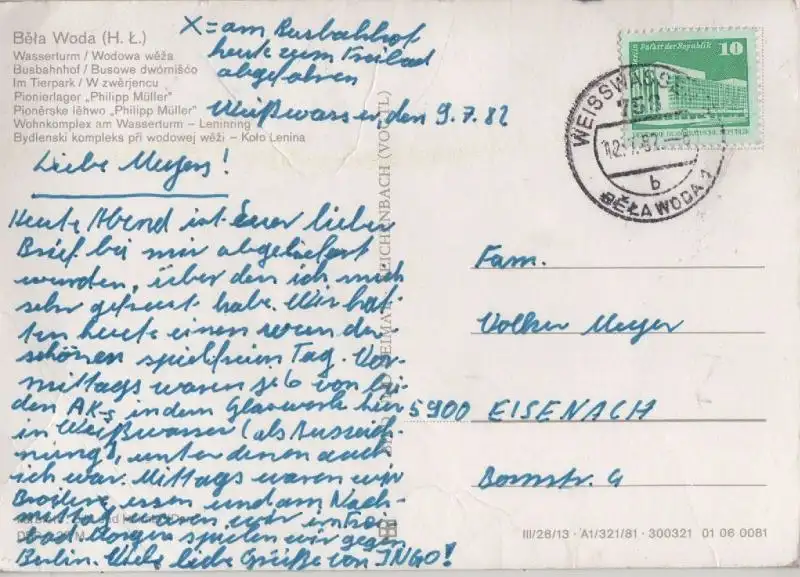 Běła Woda (H. Ł.)
Wasserturm / Wodowa wěža
Busbahnhof / Busowe dwórnišćo
Im Tierpark / W zwěrjencu
Pionierlager „Philipp Müller"
Pioněrske lěhwo „Philipp Müller"
Wohnkomplex am Wasserturm – Leninring
Bydlenski kompleks při wodowej wěži – Koło Lenina
X = am Busbahnhof
heute zum Freibad
abgefahren
Weißwasser, den 9.7.82
Liebe Meyers!
Heute Abend ist Euer lieber
Brief bei mir abgeliefert
wurden, über den ich mich
sehr gefreut habe. Wir hat-
ten heute einen wunder-
schönen spielfreien Tag. Vor-
mittags waren je 6 von bei-
den AK-s in dem Glaswerk hier
in Weißwasser (als Auszeich-
nung), unter denen auch
ich war. Mittags waren wir
Broiler essen und am Nach-
mittag waren wir im Frei-
bad. Morgen spielen wir gegen
Berlin. Viele liebe Grüße von INGO!
REICHENBACH (VOGTL)
Berlin, Palast der Republik
10
WEISSWASSER
12.7.82
b
BĚŁA WODA 1
Fam.
Volker Meyer
5900 EISENACH
Bornstr. 4
III/26/13 · A1/321/81 · 300321 01 06 0081